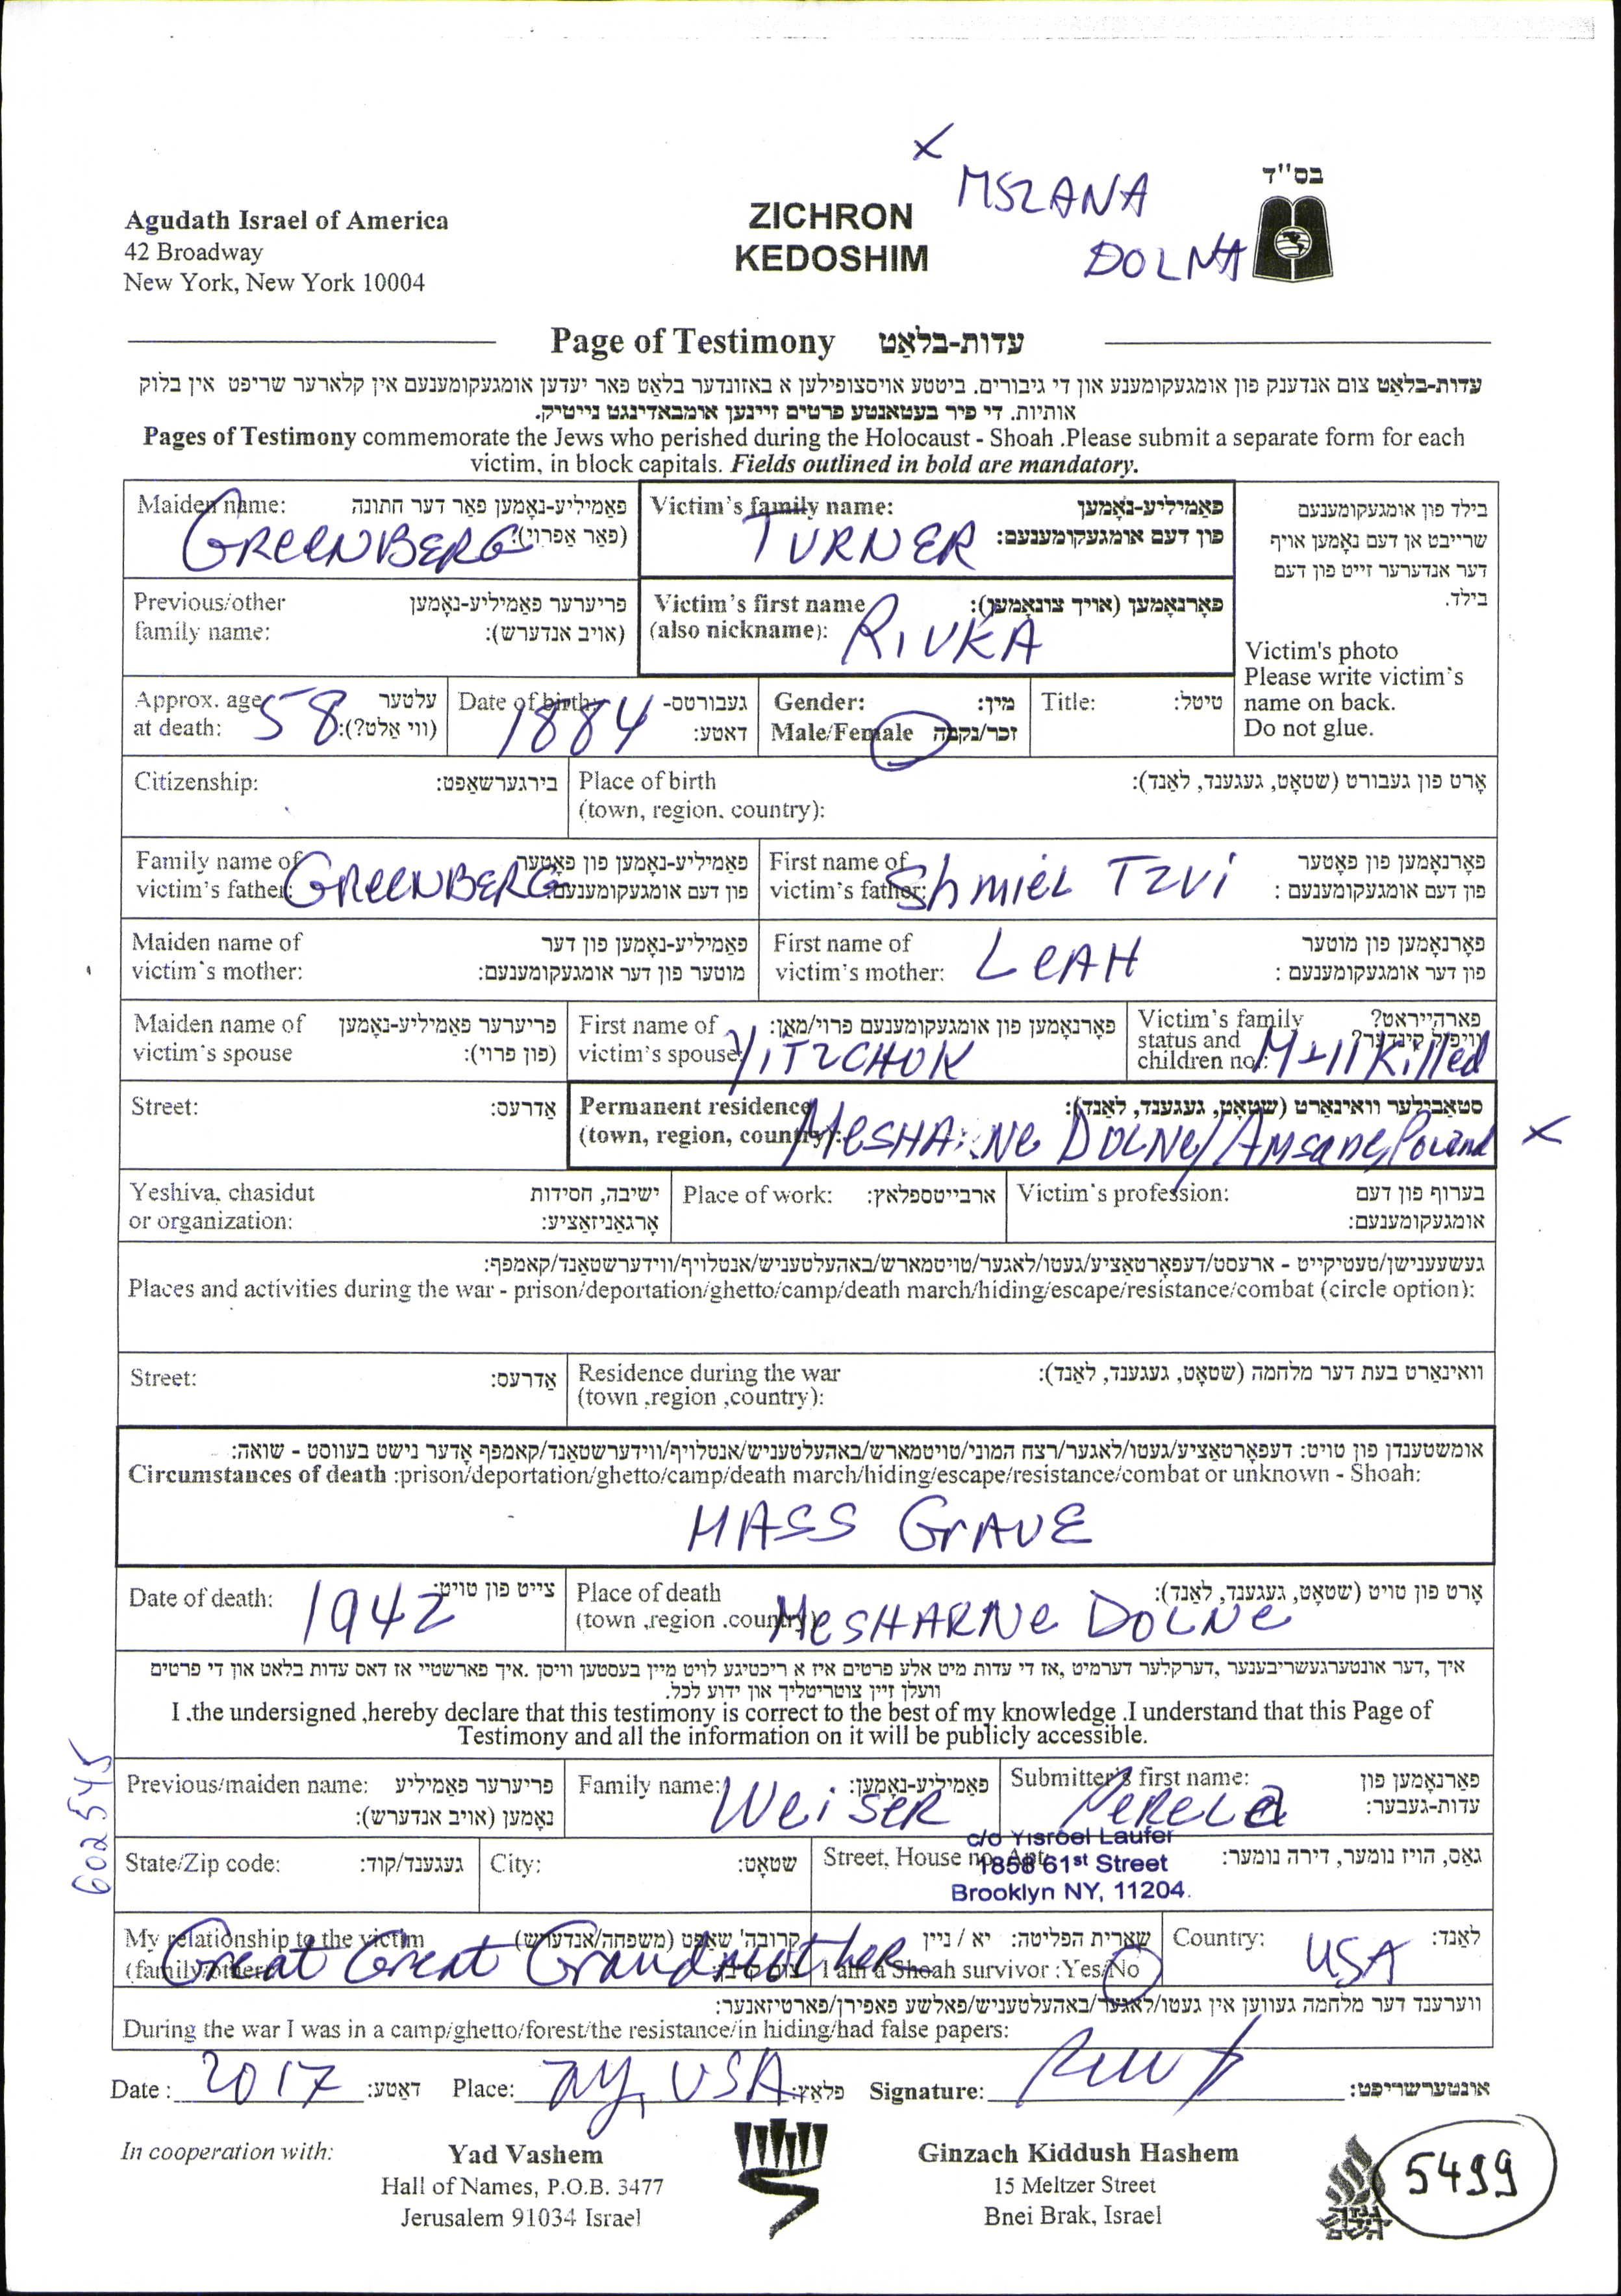 בס"ד
x MSZANA
DOLNA
Agudath Israel of America
42 Broadway
New York, New York 10004
ZICHRON
KEDOSHIM
Page of Testimony עדות-בלאַט
עדות-בלאַט צום אנדענק פון אומגעקומענע און די גיבורים. ביטטע אויסצופילען א באזונדער בלאַט פאר יעדען אומגעקומענעם אין קלארער שריפט אין בלוק
אותיות. די פיר בעטאנטע פרטים זיינען אומבאדינגט נייטיק.
Pages of Testimony commemorate the Jews who perished during the Holocaust - Shoah .Please submit a separate form for each
victim, in block capitals. Fields outlined in bold are mandatory.
Maiden name: פאַמיליע-נאָמען פאַר דער חתונה
(פאַר אַפרוי): GREENBERG
Victim's family name: פאַמיליע-נאָמען
פון דעם אומגעקומענעם: TURNER
בילד פון אומגעקומענעם
שרייבט אן דעם נאָמען אויף
דער אנדערער זייט פון דעם
בילד.
Victim's photo
Please write victim's
name on back.
Do not glue.
Previous/other פריערער פאַמיליע-נאָמען
family name: (אויב אנדערש):
Victim's first name פאָרנאָמען (אויך צונאָמען):
(also nickname): RIVKA
Approx. age עלטער
at death: 58 (ווי אַלט?):
Date of birth: געבורטס-
דאַטע: 1884
Gender: מין:
Male/Female זכר/נקבה
Title: טיטל:
Citizenship: בירגערשאַפט:
Place of birth אָרט פון געבורט (שטאָט, געגענד, לאַנד):
(town, region, country):
Family name of פאַמיליע-נאָמען פון פאָטער
victim's father: GREENBERG פון דעם אומגעקומענעם:
First name of פאָרנאָמען פון פאָטער
victim's father: Shmiel Tzvi פון דעם אומגעקומענעם :
Maiden name of פאַמיליע-נאָמען פון דער
victim's mother: מוטער פון דער אומגעקומענעם:
First name of פאָרנאָמען פון מוטער
victim's mother: LEAH פון דער אומגעקומענעם :
Maiden name of פריערער פאַמיליע-נאָמען
victim's spouse (פון פרוי):
First name of פאָרנאָמען פון אומגעקומענעם פרוי/מאַן:
victim's spouse: YITZCHOK
Victim's family פארהייראט?
status and וויפיל קינדער?
children no.: M+11 Killed
Street: אַדרעס:
Permanent residence סטאַבילער וואוינאָרט (שטאָט, געגענד, לאַנד):
(town, region, country): DOLNE/ x
Yeshiva, chasidut ישיבה, חסידות
or organization: אָרגאַניזאַציע:
Place of work: ארבייטספלאץ:
Victim's profession: בערוף פון דעם
אומגעקומענעם:
געשעענישן/טעטיקייט - ארעסט/דעפאָרטאַציע/געטו/לאגער/טויטמארש/באהעלטעניש/אנטלויף/ווידערשטאַנד/קאמפף:
Places and activities during the war - prison/deportation/ghetto/camp/death march/hiding/escape/resistance/combat (circle option):
Street: אַדרעס:
Residence during the war וואוינאָרט בעת דער מלחמה (שטאָט, געגענד, לאַנד):
(town ,region ,country):
אומשטענדן פון טויט: דעפּאָרטאַציע/געטו/לאגער/רצח המוני/טויטמארש/באהעלטעניש/אנטלויף/ווידערשטאַנד/קאמפף אָדער נישט בעוווסט - שואה:
Circumstances of death :prison/deportation/ghetto/camp/death march/hiding/escape/resistance/combat or unknown - Shoah:
MASS GRAVE
Date of death: 1942 צייט פון טויט:
Place of death אָרט פון טויט (שטאָט, געגענד, לאַנד):
(town ,region .country MESHARNE DOLNE
איך ,דער אונטערגעשריבענער ,דערקלער דערמיט ,אז די עדות מיט אלע פרטים איז א ריכטיגע לויט מיין בעסטען וויסן .איך פארשטיי אז דאס עדות בלאט און די פרטים
וועלן זיין צוטריטליך און ידוע לכל.
I .the undersigned ,hereby declare that this testimony is correct to the best of my knowledge .I understand that this Page of
Testimony and all the information on it will be publicly accessible.
602545
Previous/maiden name: פריערער פאַמיליע
נאָמען (אויב אנדערש):
Family name: Weiser פאַמיליע-נאָמען:
Submitter's first name: פאַרנאָמען פון
Perela עדות-געבער:
State/Zip code: געגענד/קוד:
City: שטאָט:
Street, House no, Apt: גאַס, הויז נומער, דירה נומער:
c/o Yisroel Laufer
1858 61st Street
Brooklyn NY, 11204.
My relationship to the victim קרובה' שאַפט (משפחה/אנדערש)
(family/other Great Great Grandmother
שארית הפליטה: יא / ניין
I am a Shoah survivor :Yes/No
Country: USA לאַנד:
ווערענד דער מלחמה געווען אין געטו/לאגער/באהעלטעניש/פאלשע פאפירן/פארטיזאנער:
During the war I was in a camp/ghetto/forest/the resistance/in hiding/had false papers:
Date : 2017 דאַטע: Place: NY, USA פלאַץ: Signature: אונטערשריפט:
In cooperation with:
Yad Vashem
Hall of Names, P.O.B. 3477
Jerusalem 91034 Israel
Ginzach Kiddush Hashem
15 Meltzer Street
Bnei Brak, Israel
5499